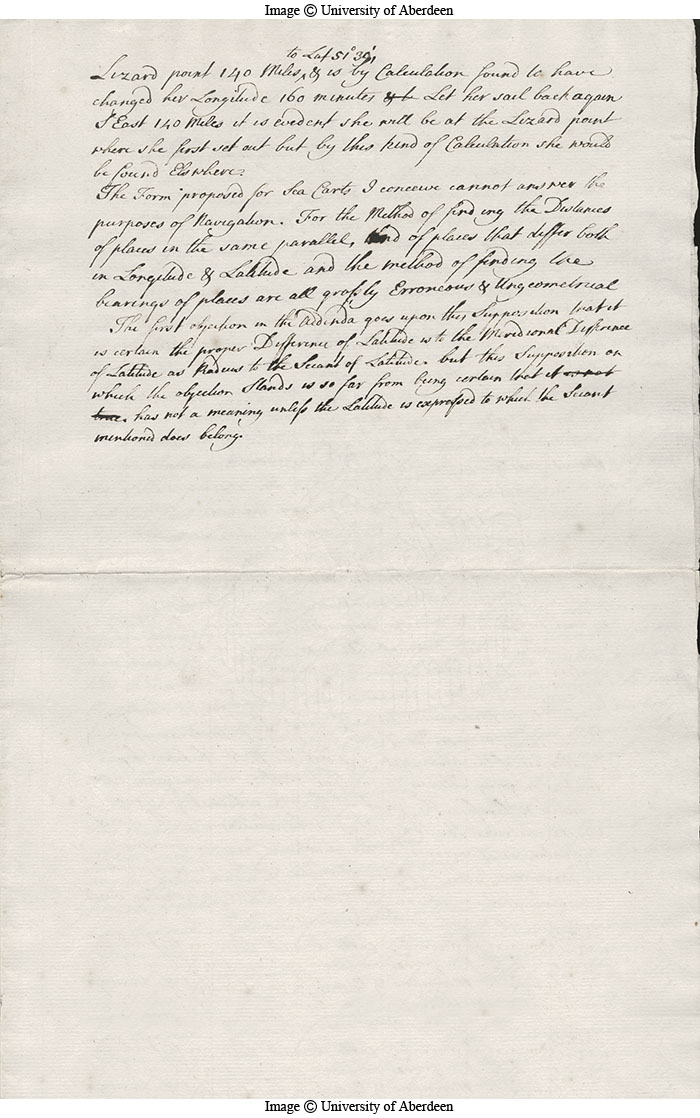 Image © University of Aberdeen
to Lat 51° 39'
Lizard point 140 Miles, & is by Calculation found to have
changed her Longitude 160 minutes & L Let her sail back again
East 140 Miles it is evident she will be at the Lizard point
where she first set out but by this kind of Calculation she would
be found Elswhere.
The Form proposed for Sea Carts I conceive cannot answer the
purposes of Navigation. For the Method of finding the Distances
of places in the same parallel, and of places that differ both
in Longitude & Latitude and the method of finding the
bearings of places are all grossly Erroneous & Ungeometrical
The first objection in the Addenda goes upon this Supposition that it
is certain the proper Difference of Latitude is to the Meridional Difference
of Latitude as Radius to the Secant of Latitude. but this Supposition on
which the objection Stands is so far from being certain that it is not
true. has not a meaning unless the Latitude is expressed to which the Secant
mentioned does belong.
Image © University of Aberdeen